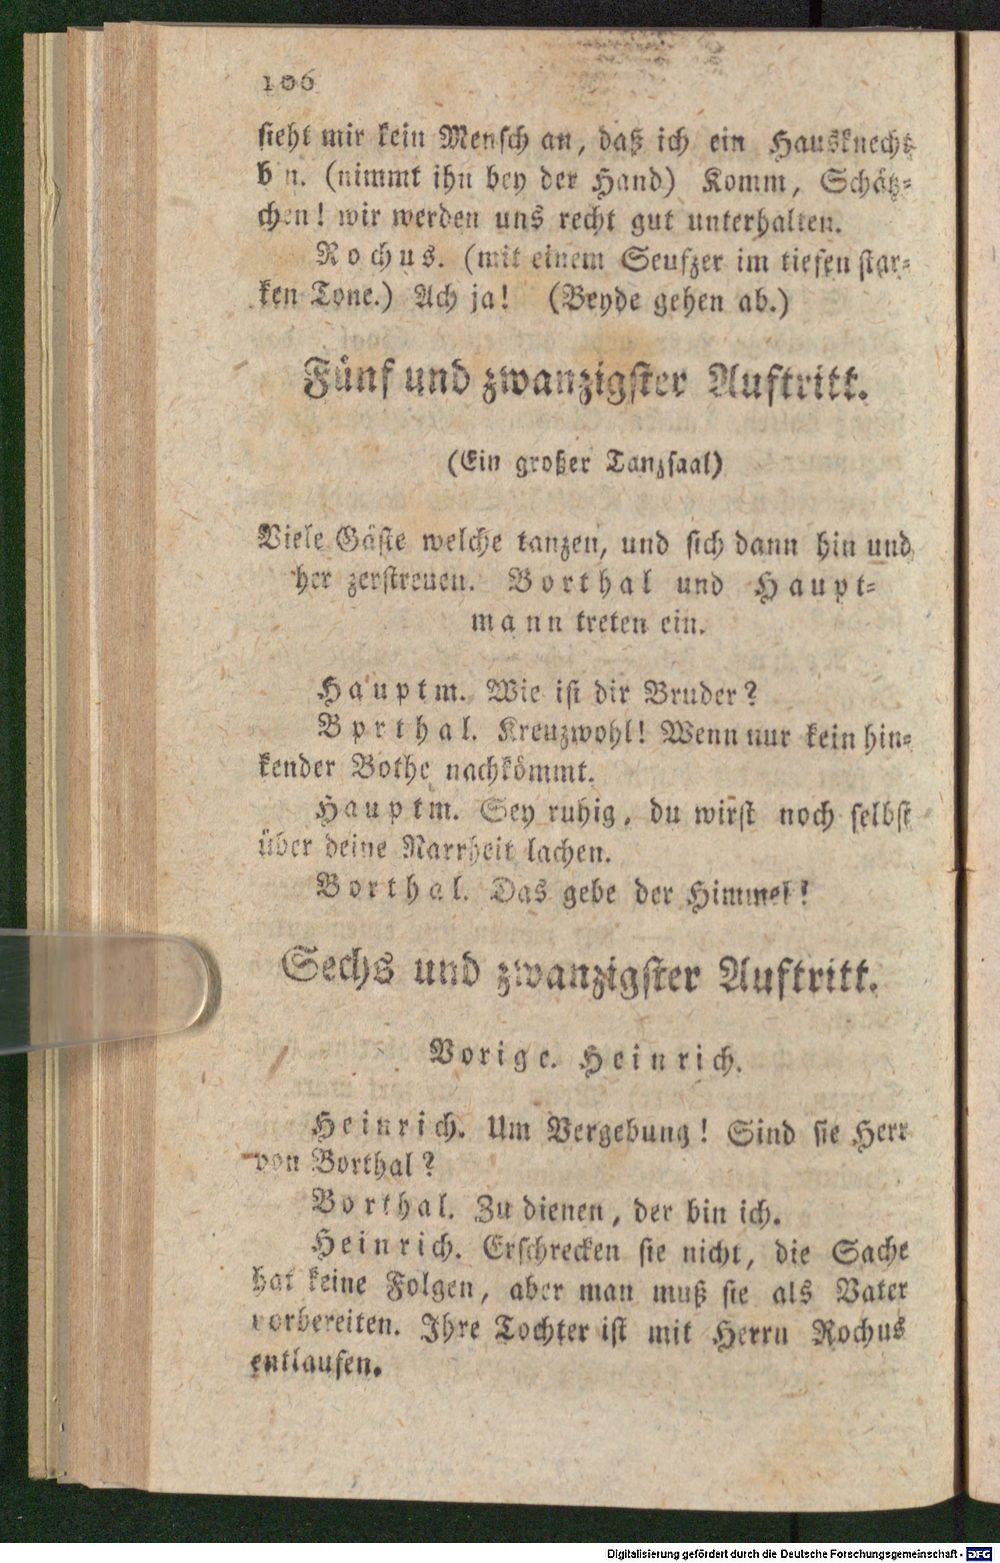 106
sieht mir kein Mensch an, daß ich ein Hausknecht
b n. (nimmt ihn bey der Hand) Komm, Schätz-
chen! wir werden uns recht gut unterhalten.
Rochus. (mit einem Seufzer im tiefen star-
ken Tone.) Ach ja! (Beyde gehen ab.)
Fünf und zwanzigster Auftritt.
(Ein großer Tanzsaal)
Viele Gäste welche tanzen, und sich dann hin und
her zerstreuen. Borthal und Haupt-
mann treten ein.
Hauptm. Wie ist dir Bruder?
Borthal. Kreuzwohl! Wenn nur kein hin-
kender Bothe nachkömmt.
Hauptm. Sey ruhig, du wirst noch selbst
über deine Narrheit lachen.
Borthal. Das gebe der Himmel!
Sechs und zwanzigster Auftritt.
Vorige. Heinrich.
Heinrich. Um Vergebung! Sind sie Herr
von Borthal?
Borthal. Zu dienen, der bin ich.
Heinrich. Erschrecken sie nicht, die Sache
hat keine Folgen, aber man muß sie als Vater
vorbereiten. Ihre Tochter ist mit Herrn Rochus
entlaufen.
Digitalisierung gefördert durch die Deutsche Forschungsgemeinschaft - DFG